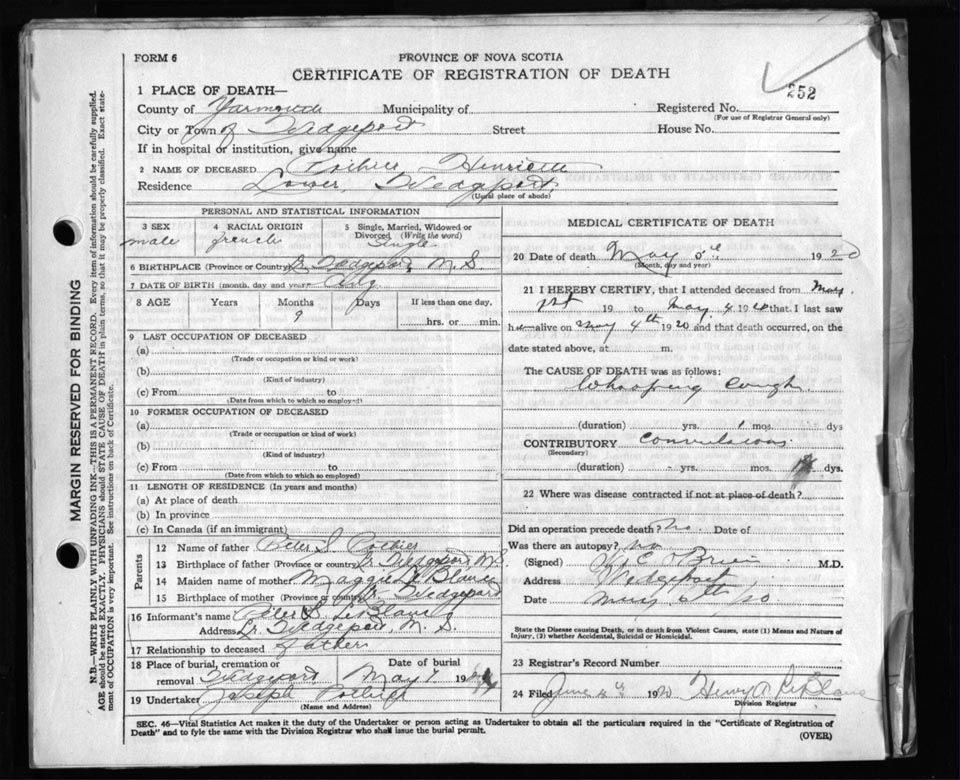 FORM 6
PROVINCE OF NOVA SCOTIA
CERTIFICATE OF REGISTRATION OF DEATH
252
1 PLACE OF DEATH—
County of Yarmouth Municipality of
Registered No.
(For use of Registrar General only)
City or Town of Wedgeport Street House No.
If in hospital or institution, give name
2 NAME OF DECEASED Pothier Henriette
Residence Lower Wedgeport
(Usual place of abode)
PERSONAL AND STATISTICAL INFORMATION
3 SEX 4 RACIAL ORIGIN 5 Single, Married, Widowed or Divorced (Write the word)
male french Single
6 BIRTHPLACE (Province or Country) Lr. Wedgeport, N.S.
7 DATE OF BIRTH (month, day and year)
8 AGE Years Months Days If less than one day,
9
hrs. or min.
9 LAST OCCUPATION OF DECEASED
(a)
(Trade or occupation or kind or work)
(b)
(Kind of industry)
(c) From to
(Date from which to which so employed)
10 FORMER OCCUPATION OF DECEASED
(a)
(Trade or occupation or kind of work)
(b)
(Kind of industry)
(c) From to
(Date from which to which so employed)
11 LENGTH OF RESIDENCE (In years and months)
(a) At place of death
(b) In province
(c) In Canada (if an immigrant)
Parents
12 Name of father Peter S. Pothier
13 Birthplace of father (Province or country) Lr. Wedgeport N.S.
14 Maiden name of mother Maggie LeBlanc
15 Birthplace of mother (Province or country) Lr. Wedgeport
16 Informant's name Peter S. LeBlanc
Address Lr. Wedgeport, N.S.
17 Relationship to deceased father
18 Place of burial, cremation or removal Wedgeport Date of burial May 7 19
19 Undertaker Joseph Pothier
(Name and Address)
MEDICAL CERTIFICATE OF DEATH
20 Date of death May 5 1920
(Month, day and year)
21 I HEREBY CERTIFY, that I attended deceased from May
1st 19 to May 4 1920 that I last saw
h alive on May 4th 1920 and that death occurred, on the
date stated above, at m.
The CAUSE OF DEATH was as follows:
Whooping Cough
(duration) yrs. 1 mos. dys
CONTRIBUTORY Convulsions
(Secondary)
(duration) yrs. mos. dys.
22 Where was disease contracted if not at place of death?
Did an operation precede death? No Date of
Was there an autopsy? No
(Signed) O'Brien M.D.
Address Wedgeport
Date May 6th 20
State the Disease causing Death, or in death from Violent Causes, state (1) Means and Nature of Injury, (2) whether Accidental, Suicidal or Homicidal.
23 Registrar's Record Number
24 Filed June 4 192 Henry A LeBlanc
Division Registrar
SEC. 46—Vital Statistics Act makes it the duty of the Undertaker or person acting as Undertaker to obtain all the particulars required in the "Certificate of Registration of
Death" and to fyle the same with the Division Registrar who shall issue the burial permit.
(OVER)
MARGIN RESERVED FOR BINDING
N.B.—WRITE PLAINLY WITH UNFADING INK—THIS IS A PERMANENT RECORD. Every item of information should be carefully supplied.
AGE should be stated EXACTLY. PHYSICIANS should STATE CAUSE OF DEATH in plain terms, so that it may be properly classified. Exact statement of OCCUPATION is very important. See instructions on back of Certificate.